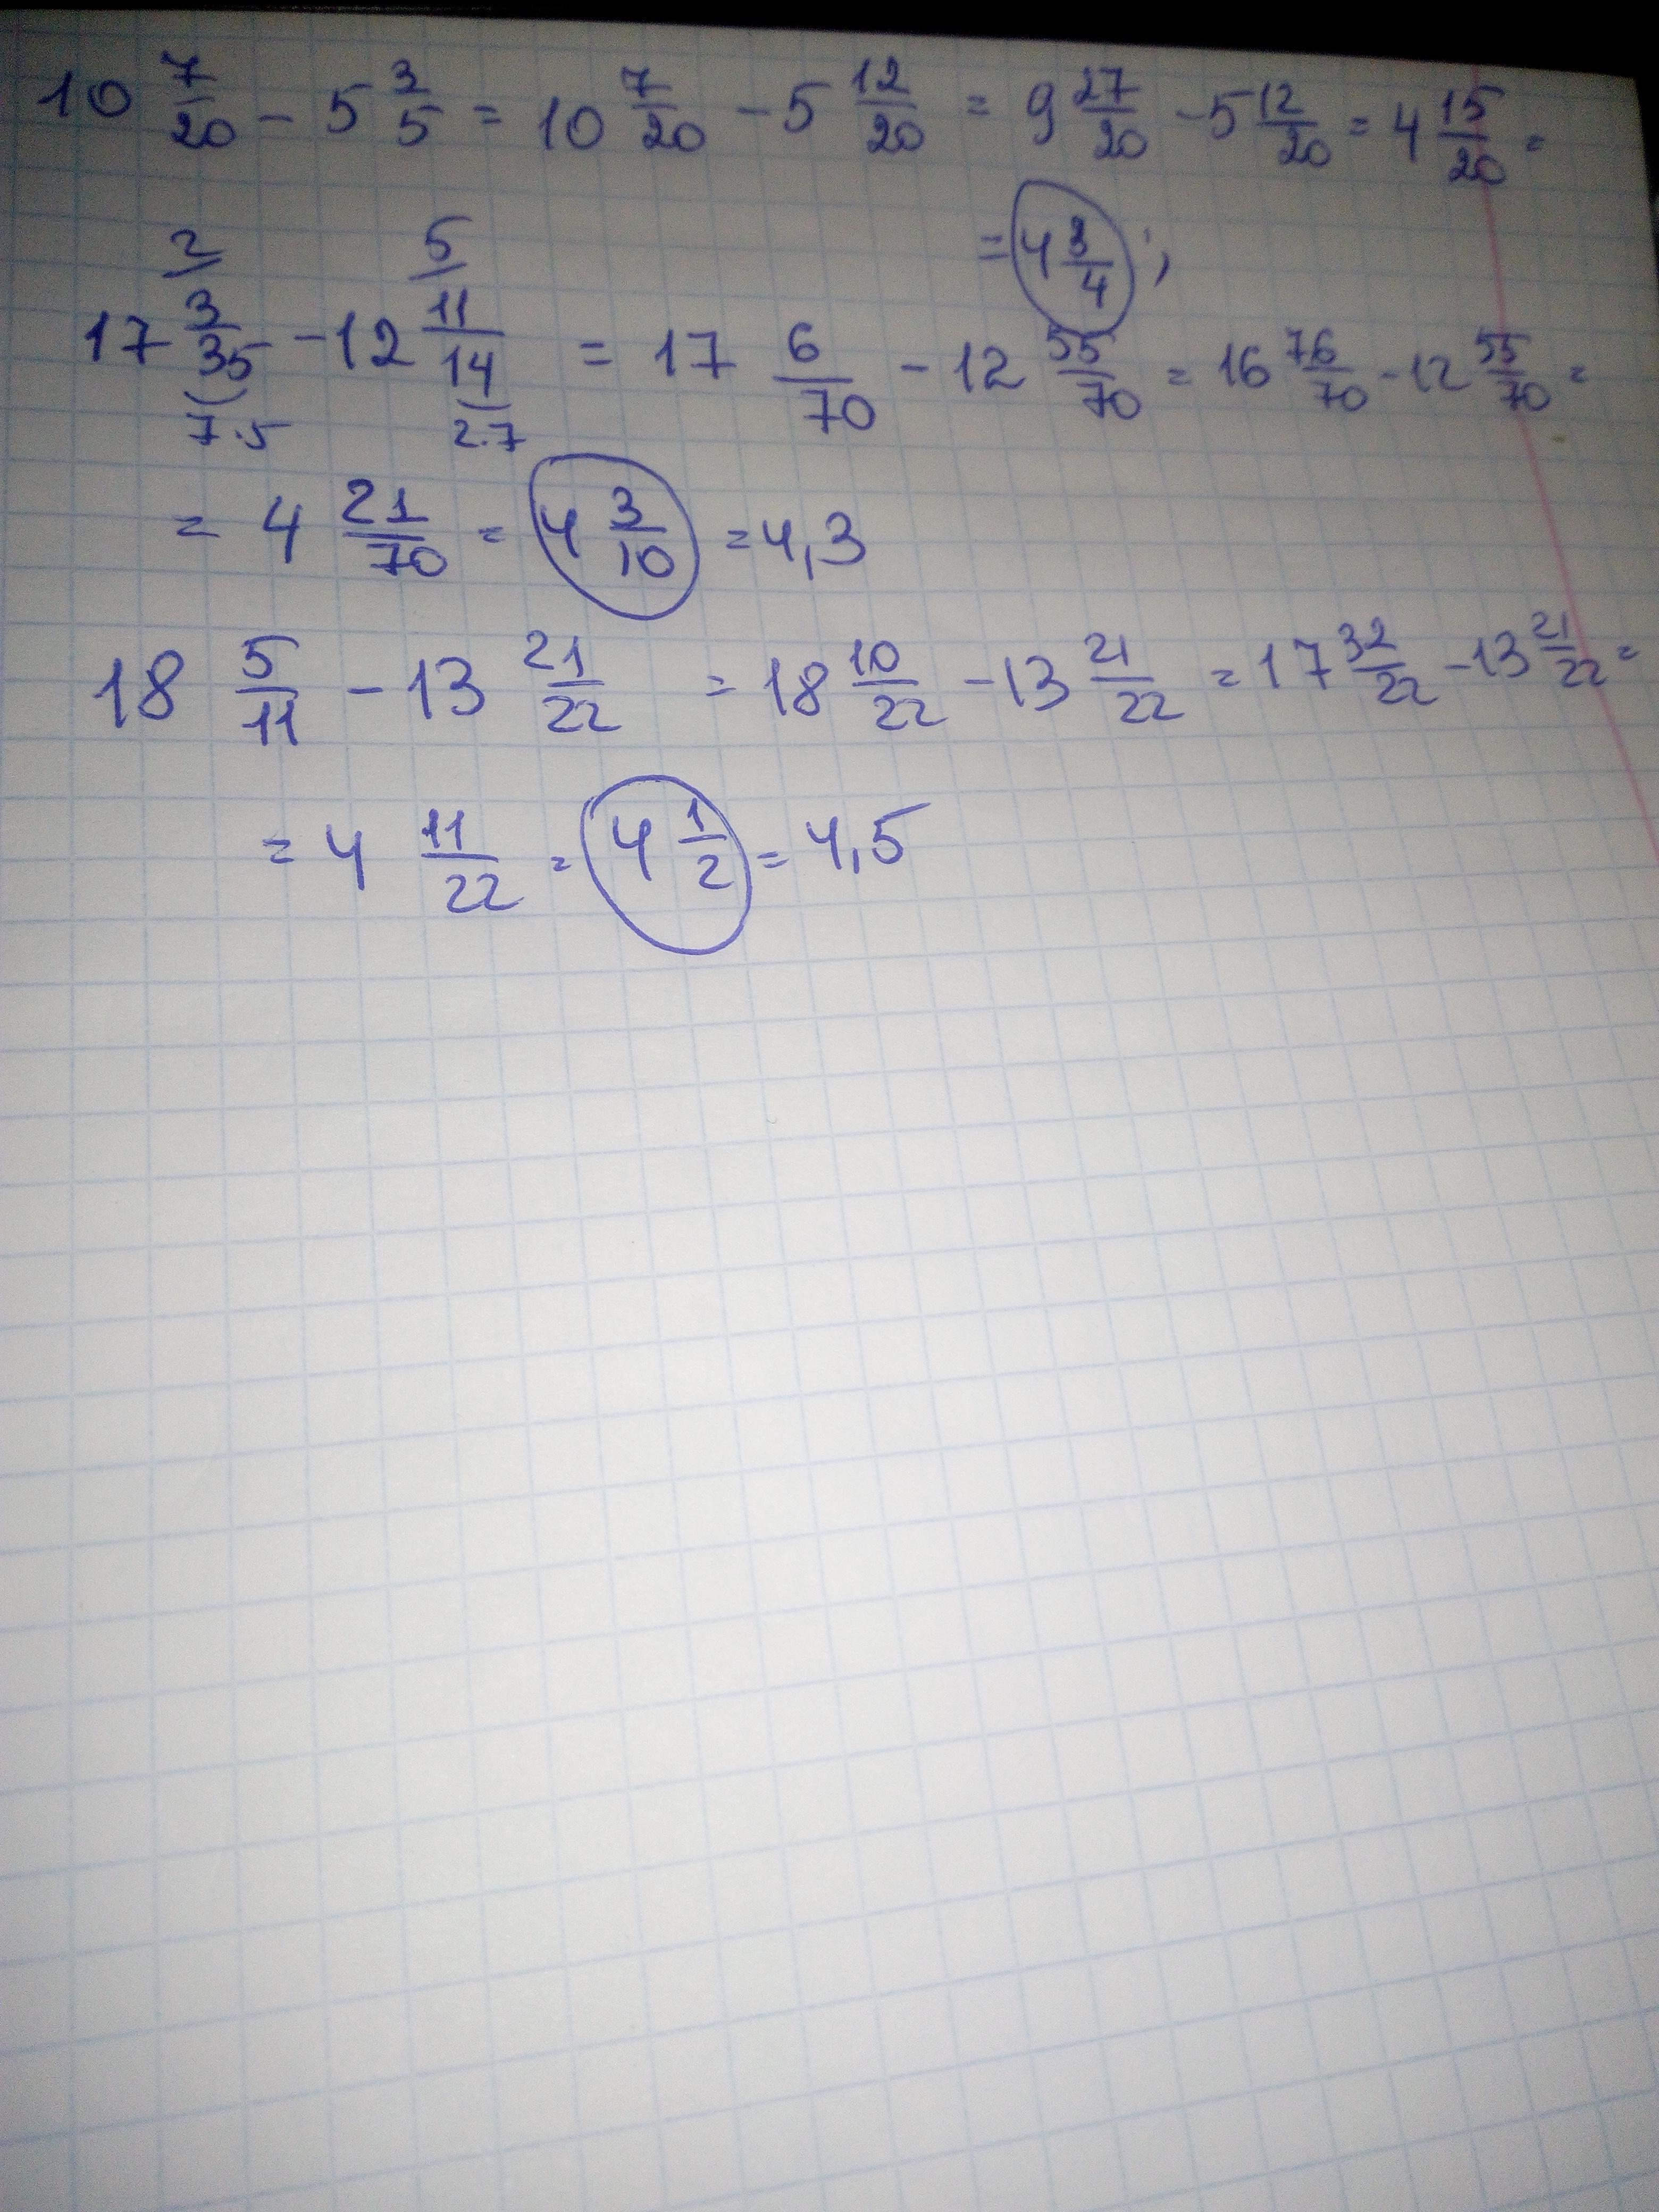 10 7/20 - 5 3/5 = 10 7/20 - 5 12/20 = 9 27/20 - 5 12/20 = 4 15/20 =
= 4 3/4 ;
2 5
17 3/35 - 12 11/14 = 17 6/70 - 12 55/70 = 16 76/70 - 12 55/70 =
7·5 2·7
= 4 21/70 = 4 3/10 = 4,3
18 5/11 - 13 21/22 = 18 10/22 - 13 21/22 = 17 32/22 - 13 21/22 =
= 4 11/22 = 4 1/2 = 4,5